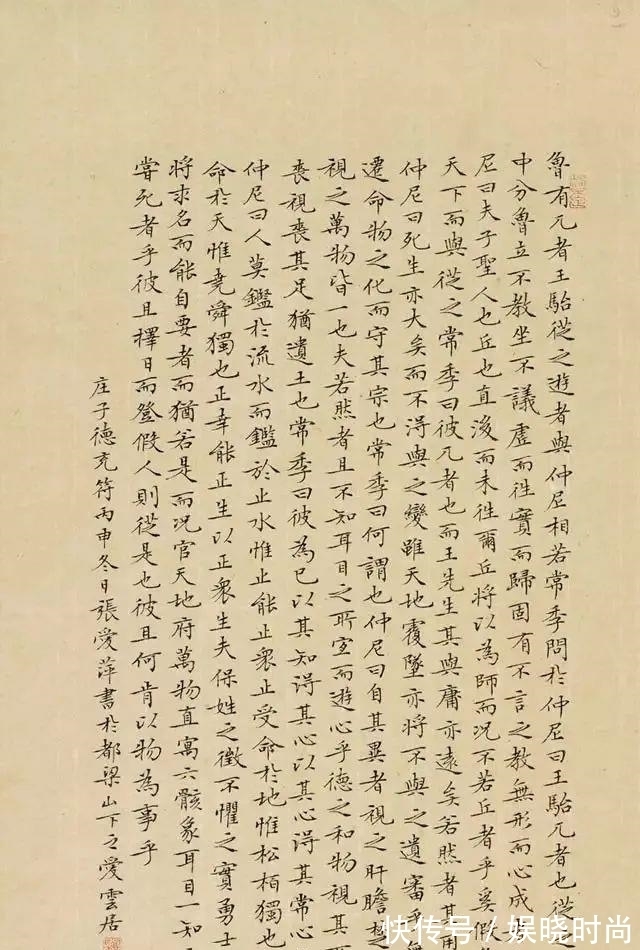 魯有兀者王駘從之遊者與仲尼相若常季問於仲尼曰王駘兀者也從之
中分魯立不教坐不議虛而往實而歸固有不言之教無形而心成
尼曰夫子聖人也丘也直後而未往爾丘將以為師而況不若丘者乎奚假
天下而與從之常季曰彼兀者也而王先生其與庸亦遠矣若然者其用
仲尼曰死生亦大矣而不得與之變雖天地覆墜亦將不與之遺審乎
遷命物之化而守其宗也常季曰何謂也仲尼曰自其異者視之肝膽楚
視之萬物皆一也夫若然者且不知耳目之所宜而遊心乎德之和物視其
喪視喪其足猶遺土也常季曰彼為己以其知得其心以其心得其常心
仲尼曰人莫鑑於流水而鑑於止水惟止能止眾止受命於地惟松柏獨也
命於天惟堯舜獨也正幸能正生以正眾生夫保姓之徵不懼之實勇士
將求名而能自要者而猶若是而況官天地府萬物直寓六骸象耳目一知
嘗死者乎彼且擇日而登假人則從是也彼且何肯以物為事乎
庄子德充符丙申冬日張愛萍書於都梁山下之愛雲居
快传号/娱晓时尚